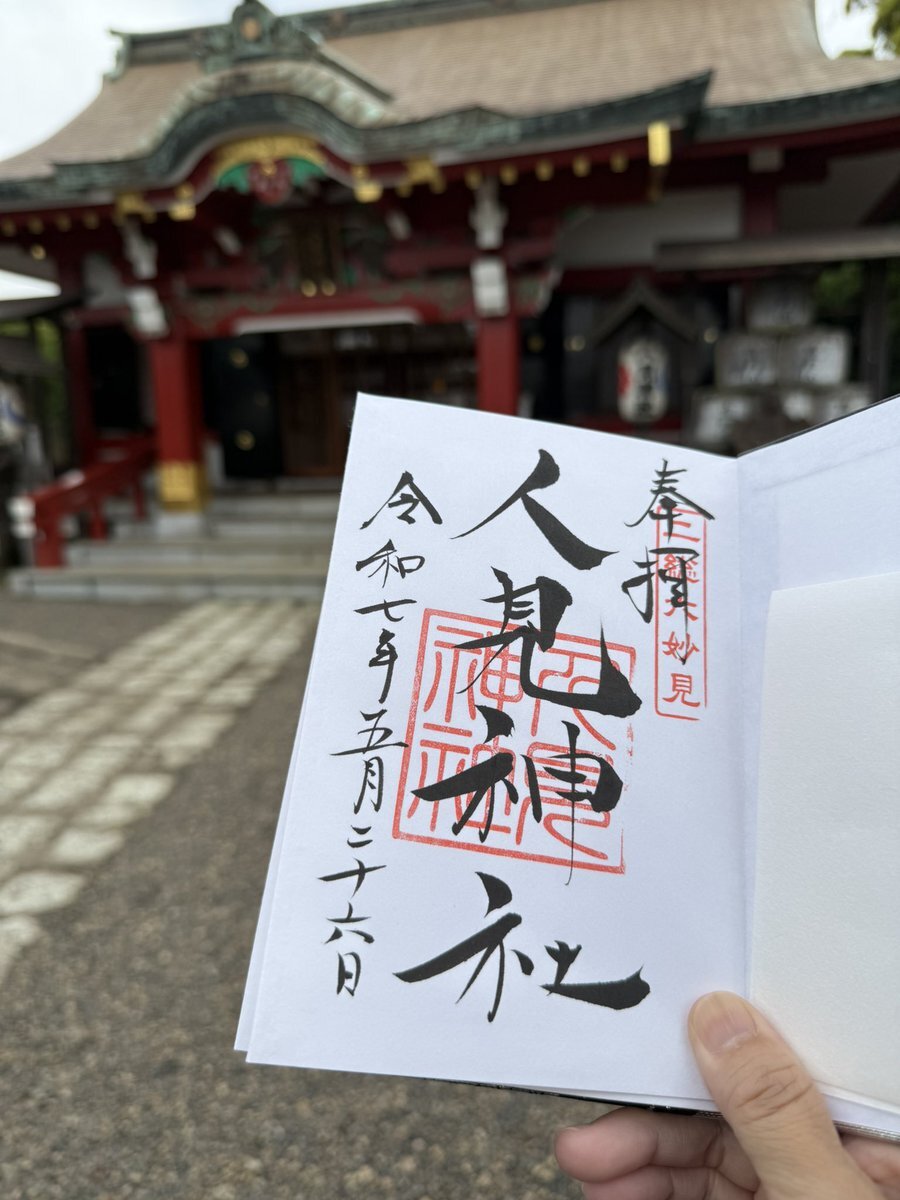 奉拝
上総大妙見
人見神社
人見神社
令和七年五月二十六日